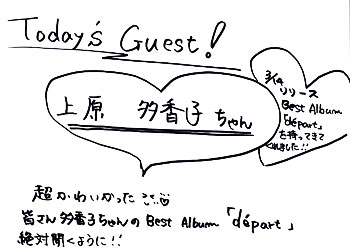 Today's Guest!
上原 多香子ちゃん
3/14
リリース
Best Album
「départ」
を持ってきて
くれました!!
超かわいかった
皆さん多香子ちゃんのBest Album「départ」
絶対聞くように!!